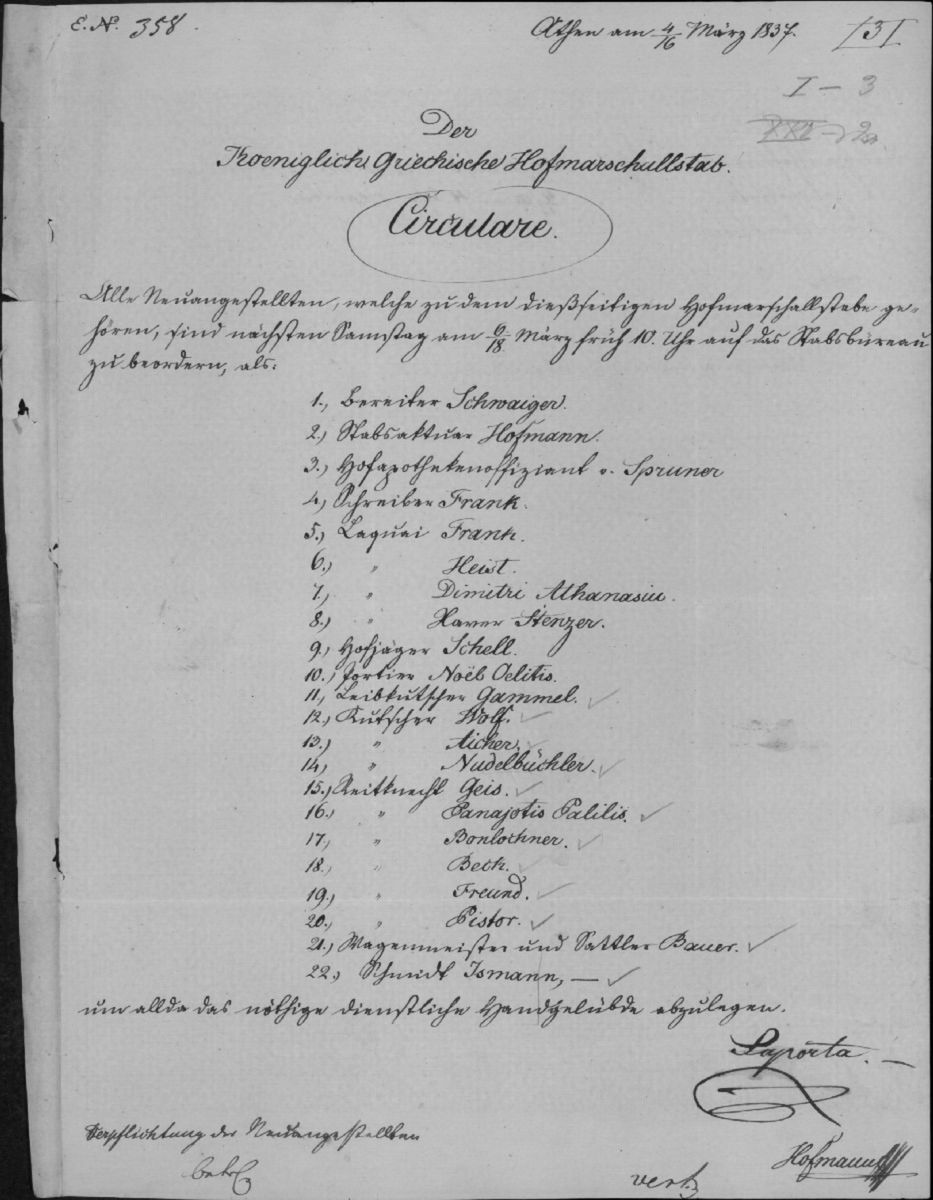 E. N. 358.
Athen am 4/16 März 1837.
I 3 I
I – 3
Der
Koeniglich Griechische Hofmarschallstab.
Circulare.
Alle Neuangestellten, welche zu dem dießseitigen Hofmarschallstabe ge-
hören, sind nächsten Samstag am 6/18 März früh 10. Uhr auf das Stabsbüreau
zu beordern, als:
1., Bereiter Schwaiger.
2.) Stabsaktuar Hofmann.
3.) Hofapothekenoffiziant v. Spruner
4.) Schreiber Frank.
5.) Laquai Frank.
6.) " Heist.
7.) " Dimitri Athanasiu.
8.) " Xaver Stenzer.
9.) Hofjäger Schell.
10.) Portier Noël Oelitis.
11.) Leibkutscher Gammel.
12.) Kutscher Wolf.
13.) " Aicher.
14.) " Nudelbüchler.
15.) Reitknecht Geis.
16.) " Panajotis Palilis.
17.) " Bonlochner.
18.) " Beck.
19.) " Freund.
20.) " Pistor.
21.) Wagenmeister und Sattler Bauer.
22.) Schmidt Ismann, —
um allda das nöthige dienstliche Handgelübde abzulegen.
Saporta. —
Verpflichtung der Neuangestellten
betr.
Hofmann
vert.